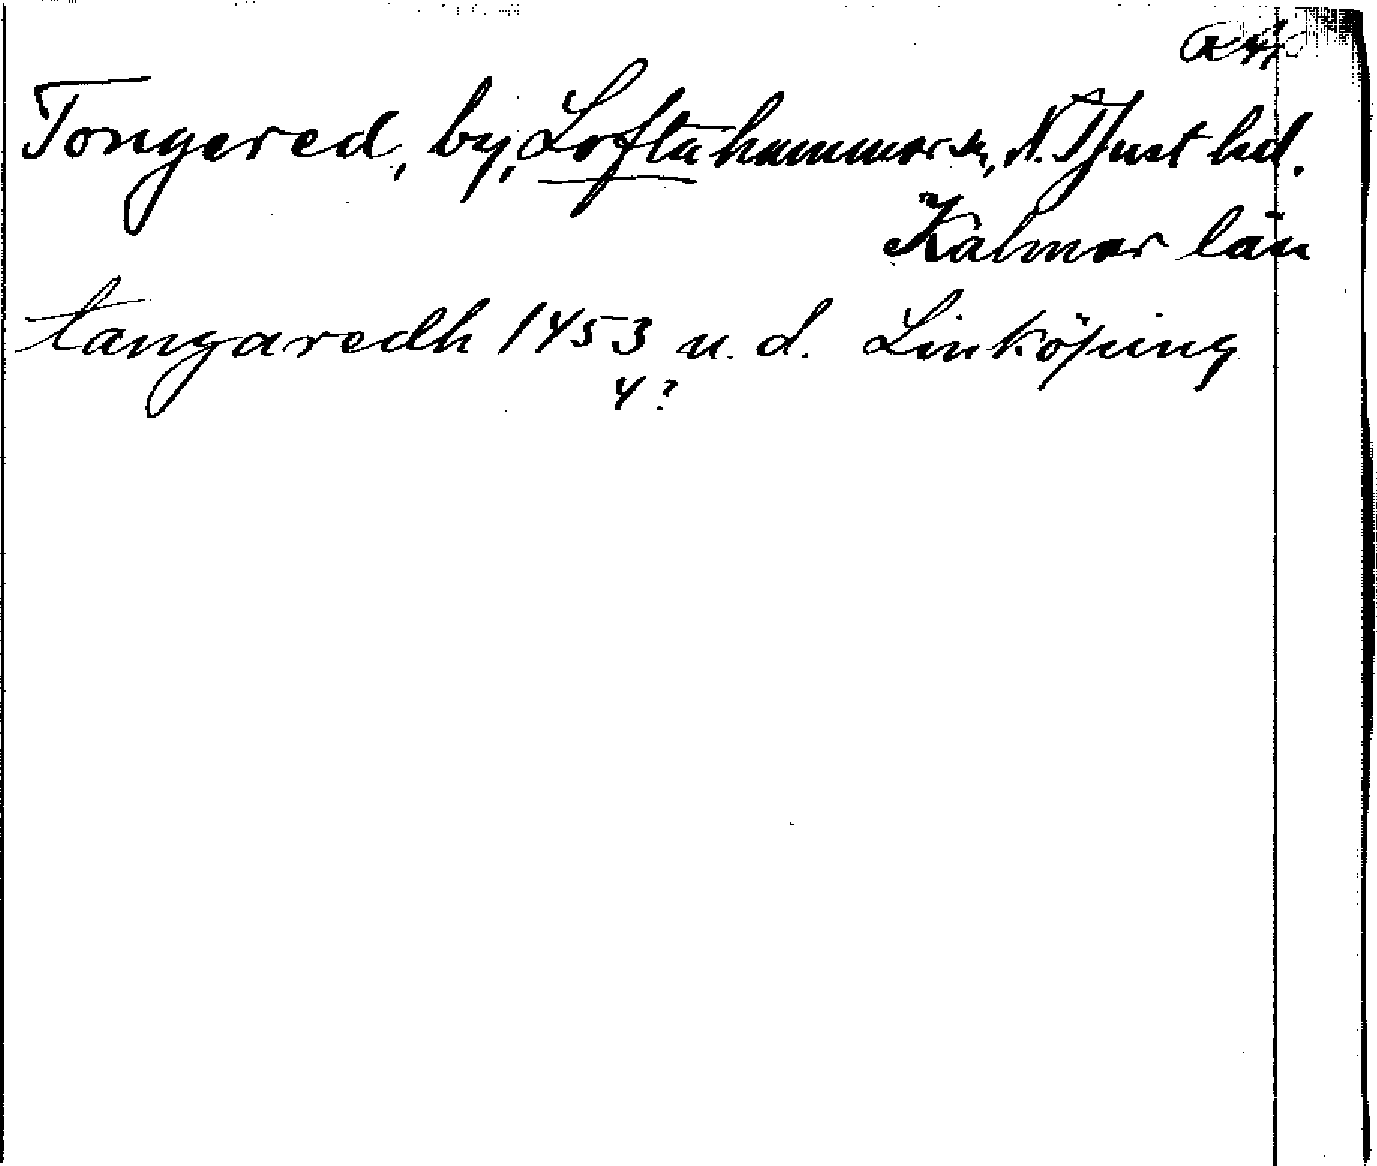 Tongered, by, Loftahammar sn, N. Tjust hd.
Kalmar län
tangaredh 1453 u. d. Linköping
4?